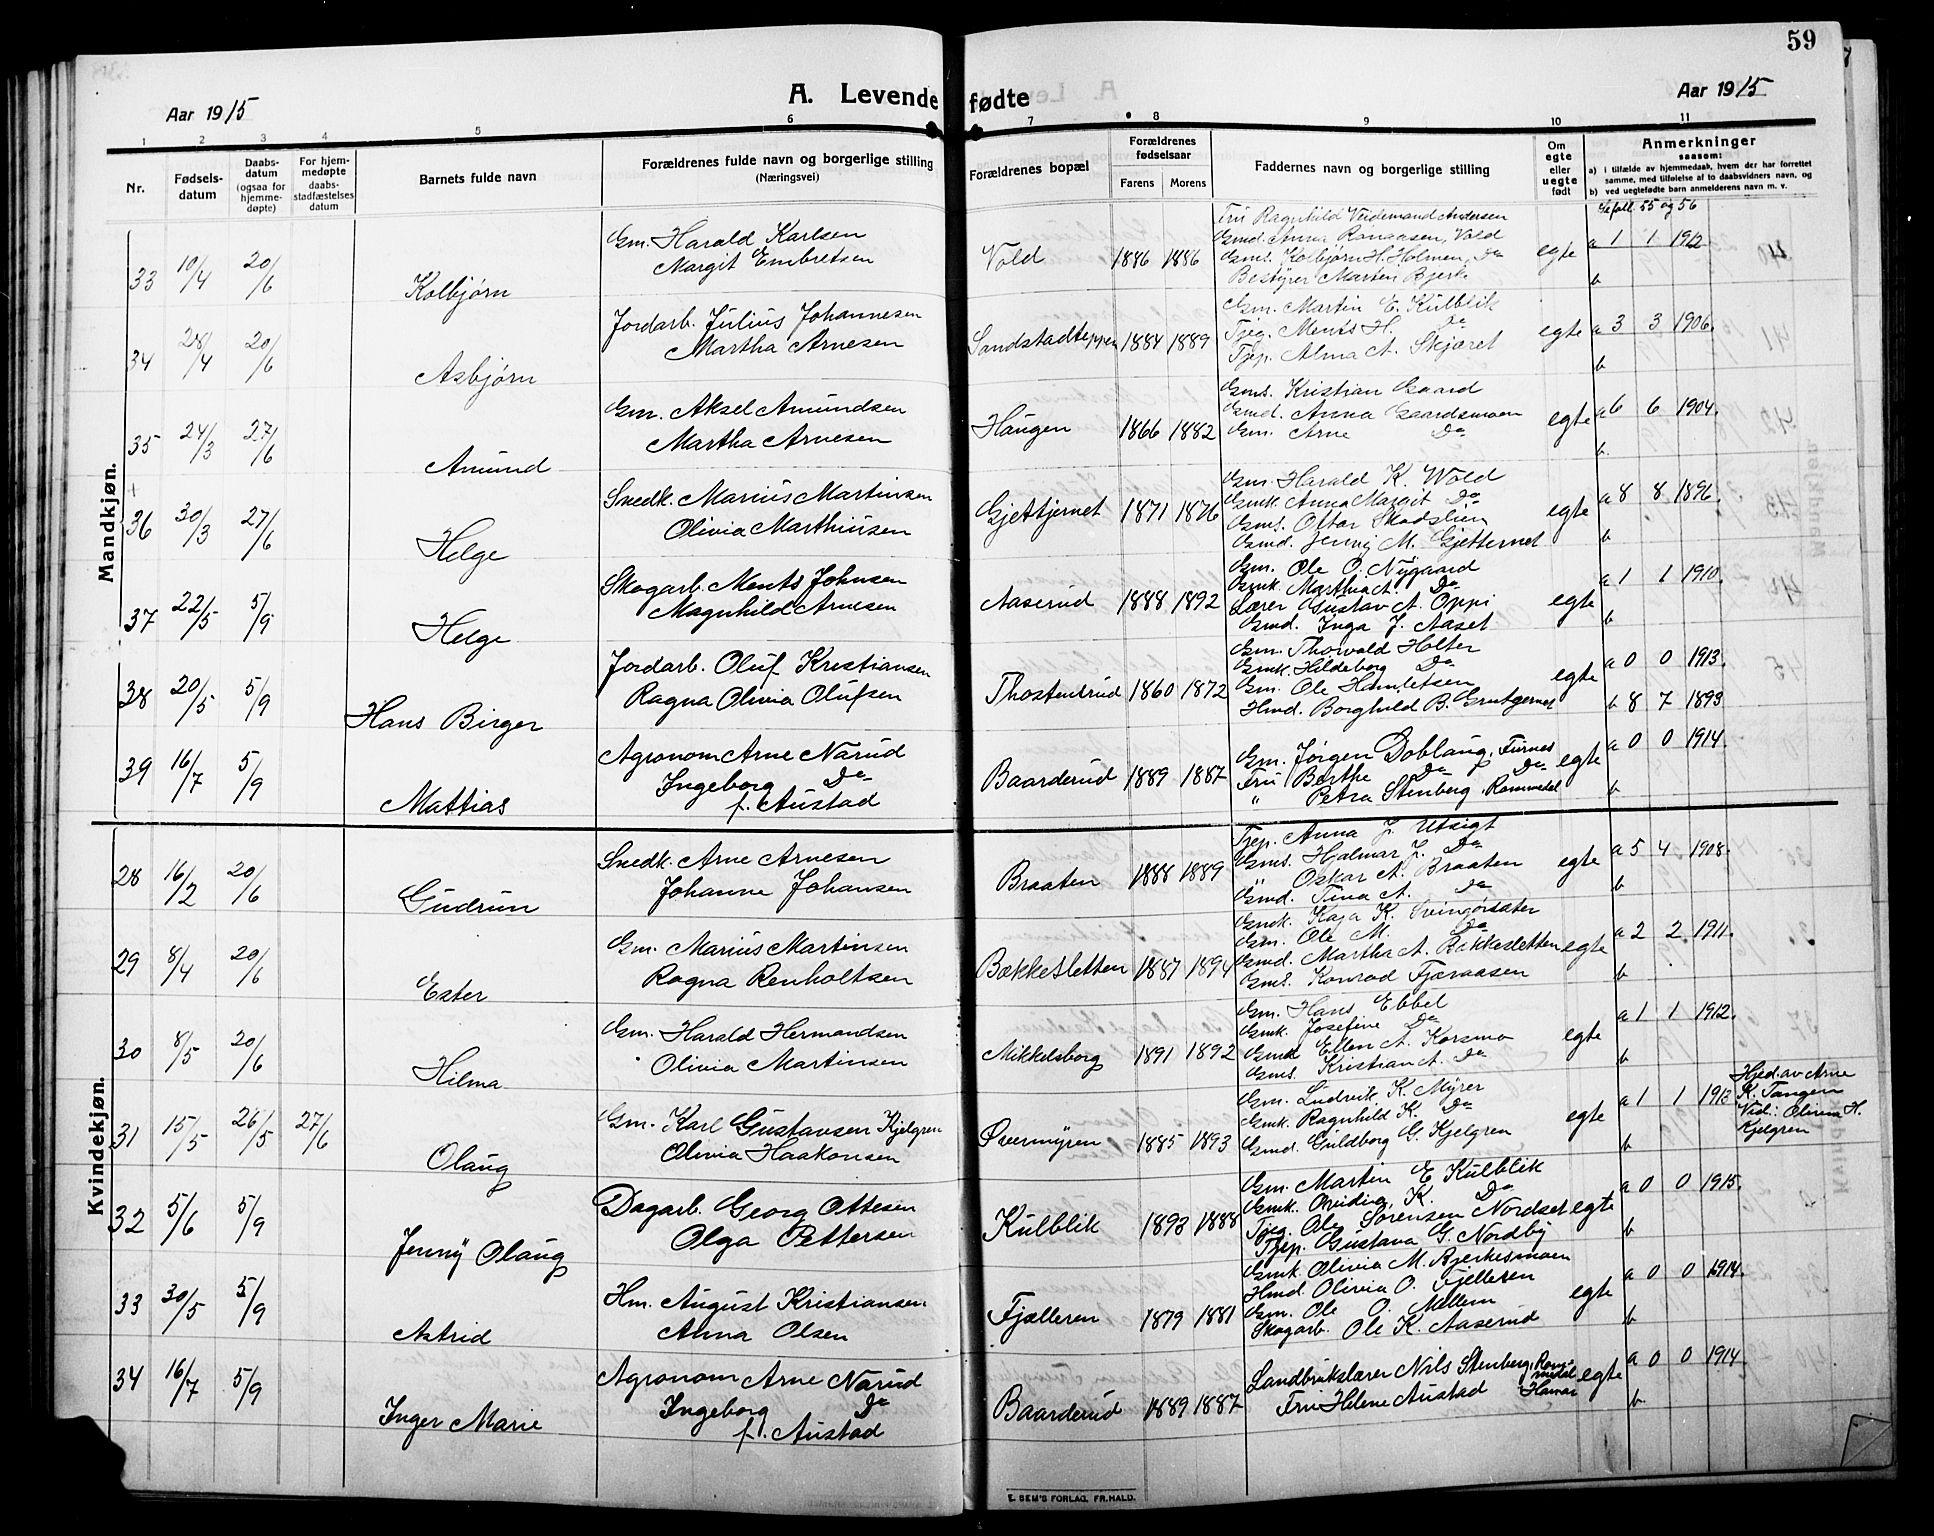 59
Aar 1915
A. Levende fødte
Aar 1915
1 2 3 4 5 6 7 8 9 10 11
Nr.
Fødsels-
datum
Daabs-
datum
(ogsaa for
hjemme-
døpte)
For hjem-
medøpte
daabs-
stadfæstelses
datum
Barnets fulde navn
Forældrenes fulde navn og borgerlige stilling
(Næringsvei)
Forældrenes bopæl
Forældrenes
fødselsaar
Farens Morens
Faddernes navn og borgerlige stilling
Om
egte
eller
uegte
født
Anmerkninger
saasom:
a) i tilfælde av hjemmedaab, hvem der har forrettet
samme, med tilføielse af to daabsvidners navn, og
b) ved uegtefødte barn anmelderens navn m. v.
55 og 56
Mandkjøn.
33 10/4 20/6 Kolbjørn
Gm. Harald Karlsen
Margit Embretsen
Vold 1886 1886
Fru Ragnhild Veidemand Andersen
Gmd. Anna Ronaasen, Vold
Gms. Kolbjørn H. Holmen, Do
Bestyrer Martin Bjerk
egte a 1 1 1912
b
34 28/4 20/6 Asbjørn
Jordarb. Julius Johannesen
Martha Arnesen
Sandstadteppen 1884 1889
Gm. Martin E. Kulblik
Tjeg. Ments H. Do
Tjep. Alma A. Skjæret
egte a 3 3 1906.
b
35 24/3 27/6 Amund
Gm. Aksel Amundsen
Martha Arnesen
Haugen 1866 1882
Gms. Kristian Gaard
Gmd. Anna Gaardsmoen
Gm. Arne Do
egte a 6 6 1904.
b.
36 30/3 27/6 Helge
Snedk. Marius Martinsen
Olivia Marthinsen
Gjettjernet 1871 1876
Gm. Harald K. Wold
Gmk. Anna Margit Do
Gms. Ottar Skadslien
Gmd. Jenny M. Gjetternet
egte a 8 8 1896.
b
37 22/5 5/9 Helge
Skogarb. Ments Johnsen
Magnhild Arnesen
Aaserud 1888 1892
Gm. Ole O. Nygaard
Gmk. Marthia A. Do
Lærer Gustav A. Oppi
Gmd. Inga J. Aaset
egte a 1 1 1910.
b
38 20/5 5/9 Hans Birger
Jordarb. Oluf Kristiansen
Ragna Olivia Olufsen
Thostentrud 1860 1872
Gm. Thorvald Holter
Gmk. Hildeborg Do
Gm. Ole Hamletsen
Hmd. Borghild B.
egte a 0 0 1913.
b 8 7 1893
39 16/7 5/9 Mattias
Agronom Arne Narud
Ingeborg Do
f. Austad
Baarderud 1889 1887
Gm. Jørgen Doblaug, Furnes
Fru Berthe Do Do
" Petra Stenberg, Rommedal
egte a 0 0 1914
b
Kvindekjøn.
28 16/2 20/6 Gudrun
Snedk. Arne Arnesen
Johanne Johansen
Braaten 1888 1889
Tjep. Anna J. Utsigt
Gms. Hjalmar J. Do
" Oskar A. Braaten
Gmd. Tina A. Do
egte a 5 4 1908.
b
29 8/4 20/6 Ester
Gm. Marius Martinsen
Ragna Renholtsen
Bækkesletten 1887 1894
Gmk. Kaja K. Svingørsæter
Gm. Ole M. Do
Gmd. Martha A. Bækkesletten
Gms. Konrad Fjæraasen
egte a 2 2. 1911.
b
30 8/5 20/6 Hilma
Gm. Harald Hermandsen
Olivia Martinsen
Mikkelsborg 1891 1892
Gm. Hans Ebbel
Gmk. Josefine Do
Gmd Ellen A. Korsmo
Gms. Kristian A. Do
egte a 1 1 1912.
b
31 15/5 26/5 27/6 Olaug
Gm. Karl Gustavsen Kjelgren
Olivia Haakonsen
Øvermyren 1885 1893
Gm. Ludvik K. Myrer
Gmk. Ragnhild K. Do
Gmd. Guldborg G. Kjelgren
egte a 1 1 1913
b
Hjed. av Arne
K. Tangen
Vid.: Olivia H.
Kjelgren
32 5/6 5/9 Jenny Olaug
Dagarb. Georg Ottesen
Olga Pettersen
Kulblik 1893 1888
Gm. Martin E Kulblik
Gmk. K. Do
Tjeg. Ole Sørensen Nordset
Tjep. Gustava G. Nordby
egte a 0 0 1915.
b
33 30/5 5/9 Astrid
Hm. August Kristiansen
Anna Olsen
Fjælleren 1879 1881
Gmk. Olivia M. Bjerkesmoen
Hmd. Olivia O. Fjelleren
Gm. Ole O. Mellem
Skogarb. Ole K. Aaserud
egte a 0 0 1914.
b
34 16/7 5/9 Inger Marie
Agronom Arne Narud
Ingeborg Do
f. Austad
Baarderud 1889 1887
Landbrukslærer Nils Stenberg, Rom-
medal
Fru Helene Austad Hamar
egte a 0 0 1914
b.
E. SEM'S FORLAG, FR.HALD.